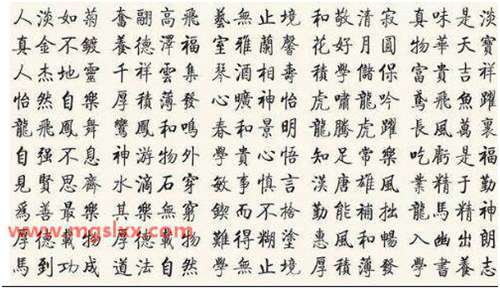 人淡如菊 奮翮高飛 藝無止境 和敬清寂 真味是淡
真金不鍍 養德澤福 室雅蘭馨 花好月圓 物華天寶
人杰地靈 千祥雲集 琴酒相壽 積學儲保 富貴吉祥
怡然自樂 厚積薄發 曠神怡 虎嘯龍吟 鳶飛魚躍
龍飛鳳舞 鸞鳳和鳴 春和景明 龍騰虎躍 長風萬裏
自强不息 神游物外 學貴心悟 知足常樂 吃虧是福
見賢思齊 水滴石穿 敏事慎言 漢唐雄風 業精于勤
爲善最樂 其樂無窮 鍥而不捨 勤能補拙 龍馬精神
www.mgslxx.com
厚德載物 厚德載物 難得糊塗 惠風和暢 入幽出朗
馬到功成 道法自然 學無止境 厚積薄發 學書養志